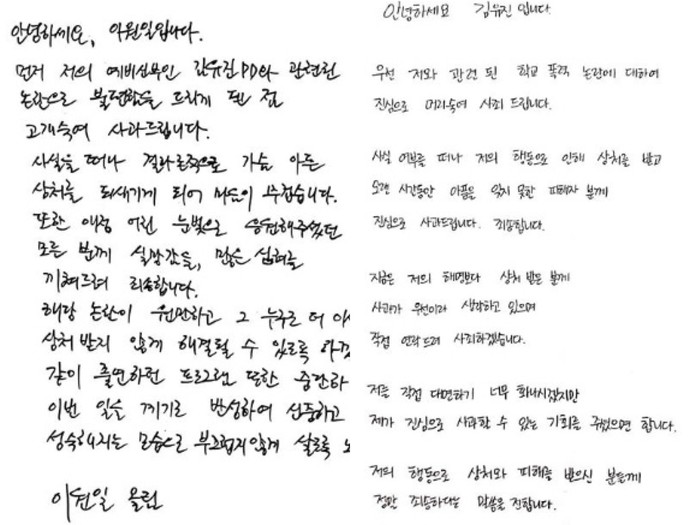 안녕하세요, 이원일입니다.
먼저 저의 예비신부인 김유진PD와 관련된
논란으로 불편함을 드리게 된 점
고개숙여 사과드립니다.
사실을 떠나 결과론적으로 가슴 아픈
상처를 되새기게 되어 마음이 무겁습니다.
또한 애정 어린 눈빛으로 응원해주셨던
모든 분께 실망감을, 많은 심려를
끼쳐드려 죄송합니다.
해당 논란이 원만하고 그 누구도 더 이
상처 받지 않게 해결될 수 있도록
같이 출연하던 프로그램 또한 중단하
이번 일을 계기로 반성하여 신중하고
성숙해지는 모습으로 부끄럽지않게 살도록
이원일 올림
안녕하세요 김유진 입니다.
우선 저와 관련 된 학교 폭력 논란에 대하여
진심으로 머리숙여 사죄 드립니다.
사실 여부를 떠나 저의 행동으로 인해 상처를 받고
오랜 시간동안 아픔을 잊지 못한 피해자 분께
진심으로 사과드립니다. 죄송합니다.
지금은 저의 해명보다 상처 받은 분께
사과가 우선이라 생각하고 있으며
직접 연락드려 사죄하겠습니다.
저를 직접 대면하기 너무 화나시겠지만
제가 진심으로 사과할 수 있는 기회를 주셨으면 합니다.
저의 행동으로 상처와 피해를 받으신 분들께
정말 죄송하다는 말씀을 전합니다.